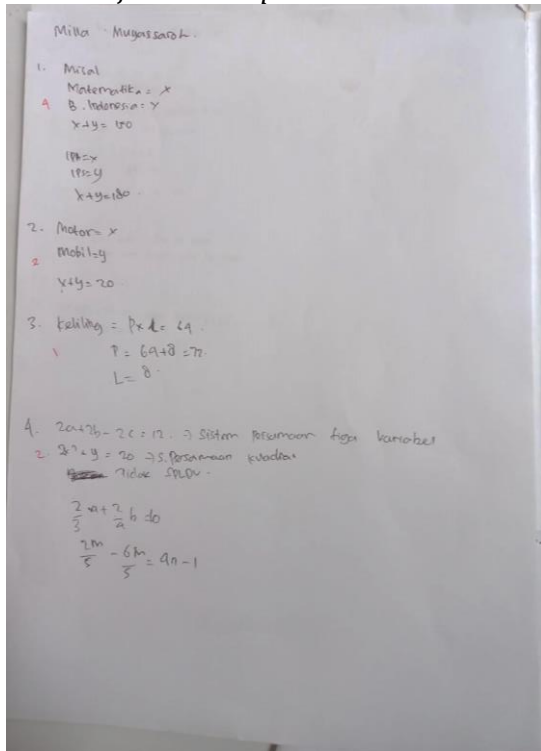 Milla Mugassaroh.
1. Misal
Matematika = x
4 B. Indonesia = Y
x+y = 150
IPA = x
IPS = y
x+y = 180.
2. Motor = x
2 Mobil = y
x+y = 20
3. Keliling = P x L = 64.
1 P = 64+8 = 72.
L = 8.
4. 2a+2b - 2c = 12. → Sistem Persamaan tiga Variabel
2. + y = 20 → S. Persamaan kuadrat
Tidak SPLDV.
2/3 a + 2/4 b
2m/5 - 6n/5 = 4n - 1